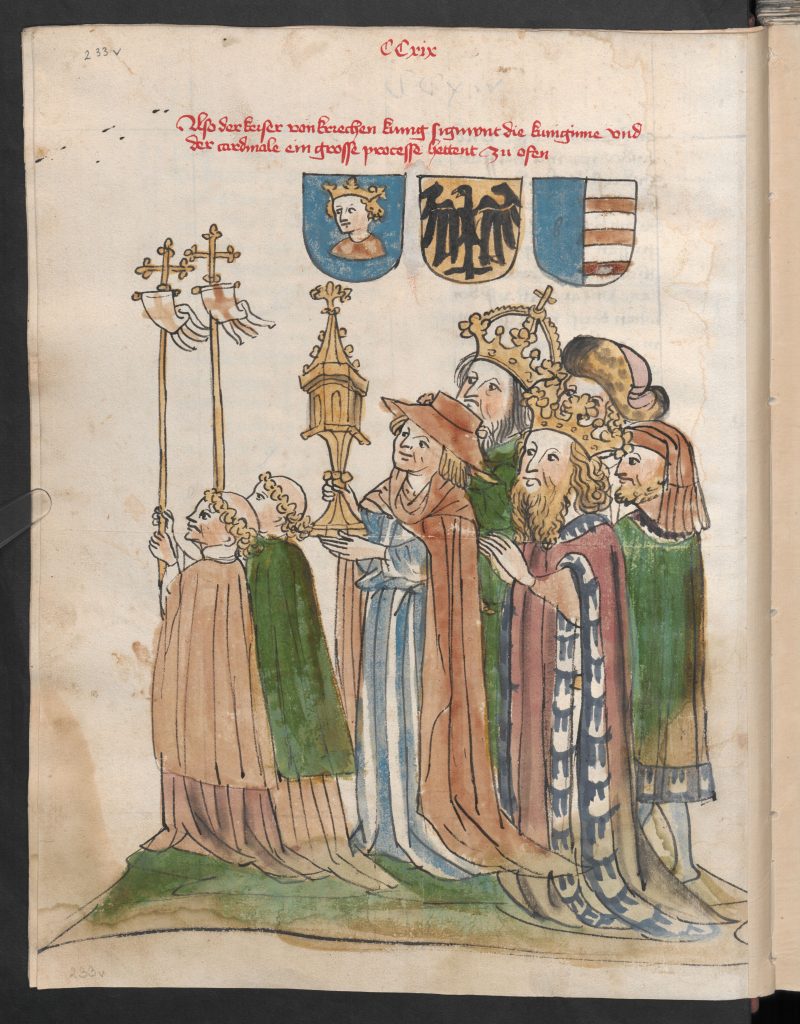 233v
CCxix
Also der keiser von kriechen kung sigmont die kunginne und
der cardinale ein grosse processe hettent zu ofen
233v